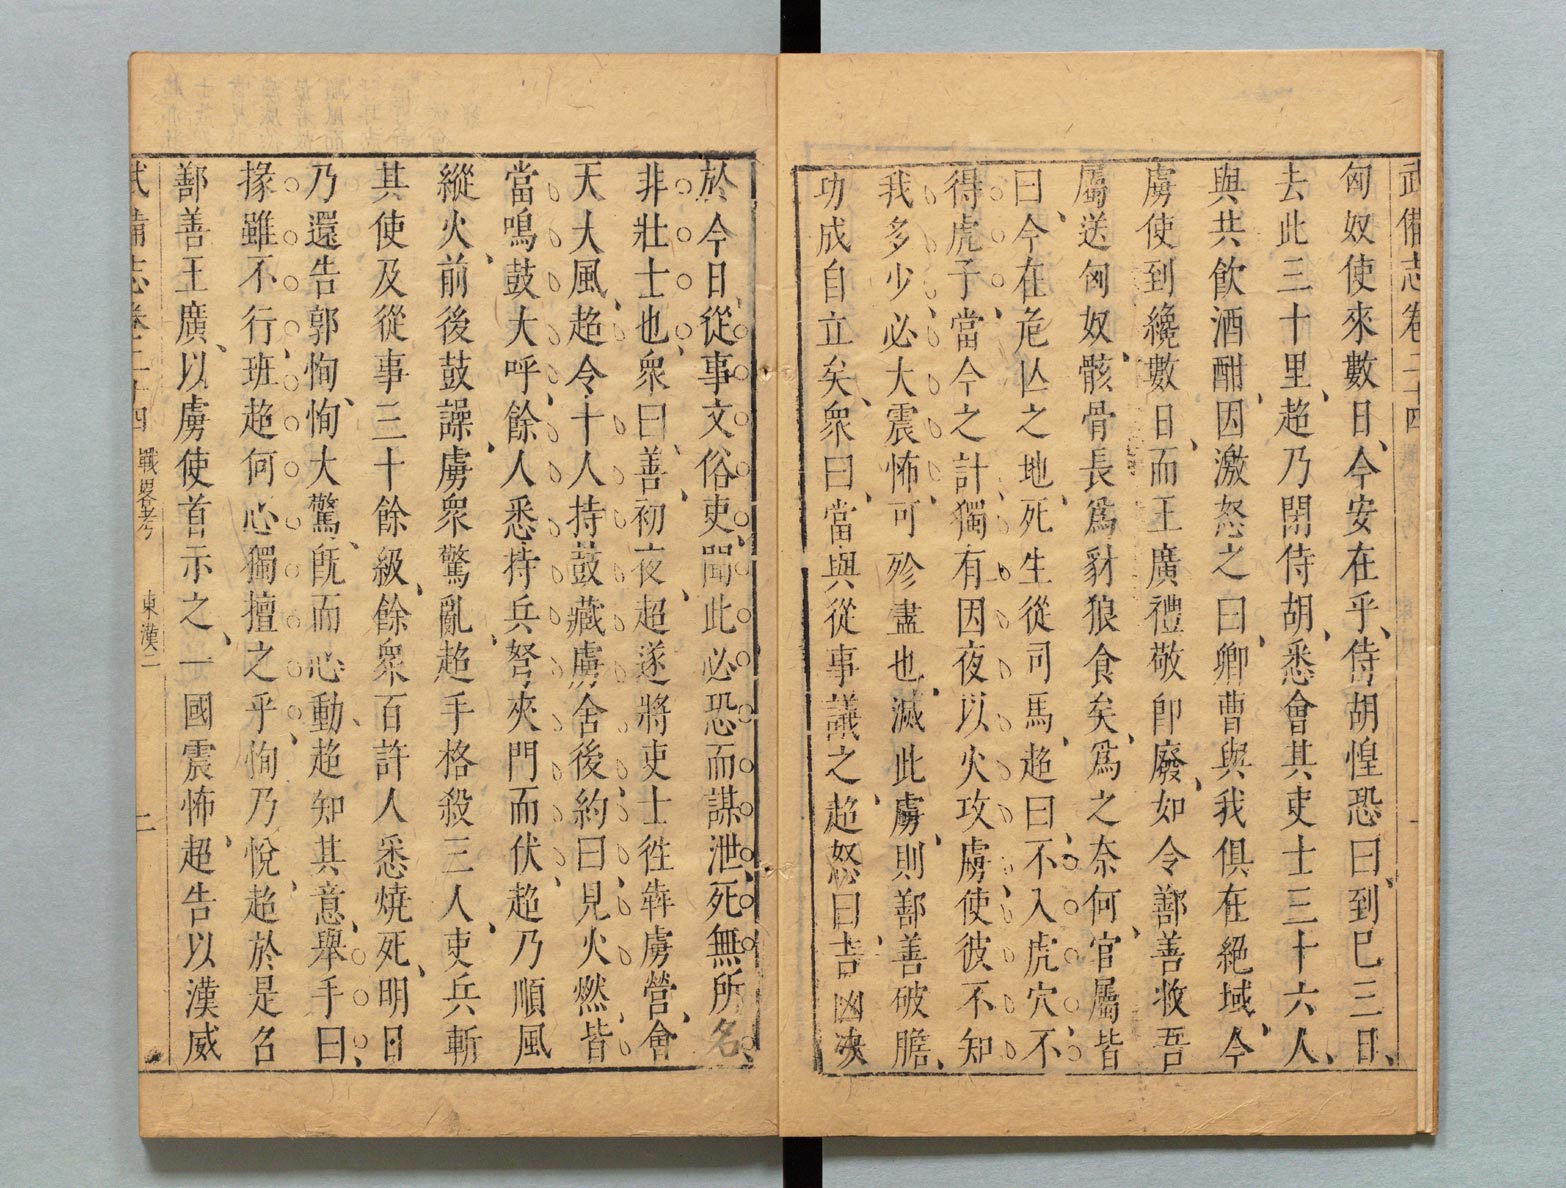 武備志卷二十四
匈奴使來數日、今安在乎、侍胡惶恐曰、到巳三日、
去此三十里、超乃閉侍胡、悉會其吏士三十六人、
與共飲酒酣、因激怒之曰、卿曹與我俱在絕域、今
虜使到纔數日、而王廣禮敬卽廢、如令鄯善收吾
屬送匈奴、骸骨長爲豺狼食矣、爲之奈何、官屬皆
曰、今在危亾之地、死生從司馬、超曰、不入虎穴不
得虎子、當今之計、獨有因夜以火攻虜使、彼不知
我多少、必大震怖、可殄盡也、滅此虜、則鄯善破膽、
功成自立矣、衆曰、當與從事議之、超怒曰、吉凶決
於今日、從事文俗吏、聞此必恐而謀泄、死無所名、
非壯士也、衆曰、善、初夜、超遂將吏士徃犇虜營、會
天大風、超令十人持鼓藏虜舍後、約曰、見火燃、皆
當鳴鼓大呼、餘人悉持兵弩夾門而伏、超乃順風
縱火、前後鼓譟、虜衆驚亂、超手格殺三人、吏兵斬
其使及從事三十餘級、餘衆百許人悉燒死、明日
乃還告郭恂、恂大驚、旣而心動、超知其意、舉手曰、
掾雖不行、班超何心獨擅之乎、恂乃悅、超於是召
鄯善王廣、以虜使首示之、一國震怖、超告以漢威
武備志卷二十四 戰畧考 東漢二 二